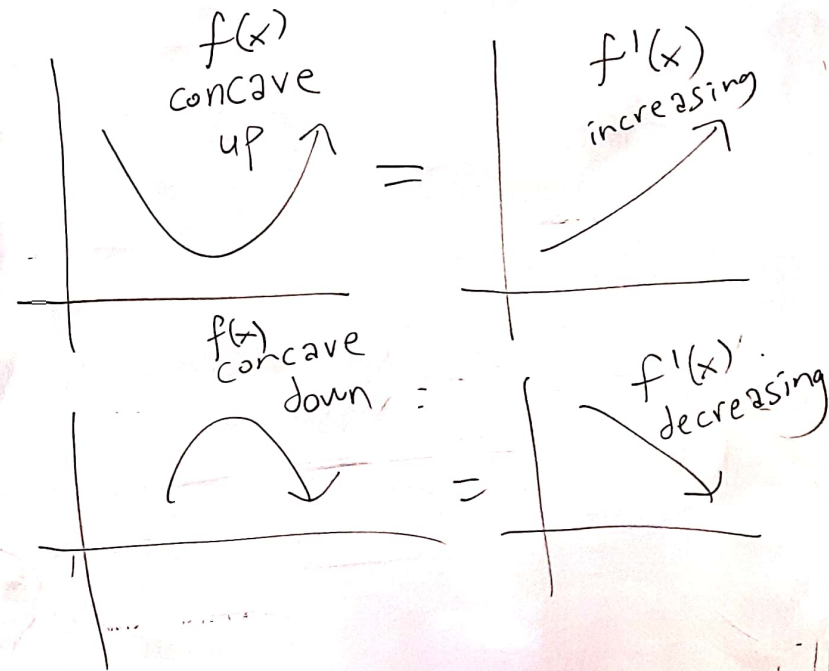 f(x)
concave
up
=
f'(x)
increasing
f(x)
concave
down
=
f'(x)
decreasing